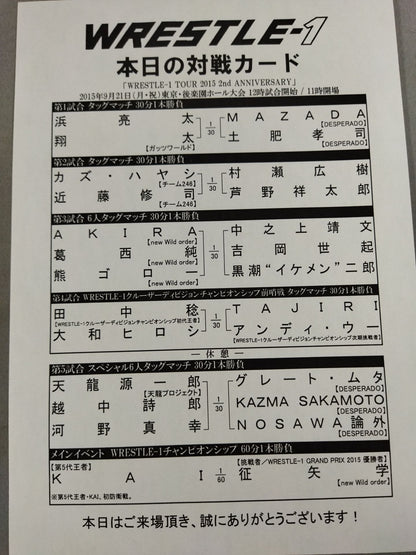 WRESTLE-1
本日の対戦カード
「WRESTLE-1 TOUR 2015 2nd ANNIVERSARY」
2015年9月21日(月・祝)東京・後楽園ホール大会 12時試合開始 / 11時開場
第1試合 タッグマッチ 30分1本勝負
浜亮太 1/30 MAZADA
【DESPERADO】
翔太 土肥孝司
【ガッツワールド】 【DESPERADO】
第2試合 タッグマッチ 30分1本勝負
カズ・ハヤシ 1/30 村瀬広樹
【チーム246】
近藤修司 芦野祥太郎
【チーム246】
第3試合 6人タッグマッチ 30分1本勝負
AKIRA 中之上靖文
【new Wild order】
葛西純 1/30 吉岡世起
【new Wild order】
熊ゴロー 黒潮“イケメン”二郎
【new Wild order】
第4試合 WRESTLE-1クルーザーディビジョンチャンピオンシップ前哨戦 タッグマッチ 30分1本勝負
田中稔 1/30 TAJIRI
【WRESTLE-1クルーザーディビジョンチャンピオンシップ初代王者】
大和ヒロシ アンディ・ウー
【WRESTLE-1クルーザーディビジョンチャンピオンシップ次期挑戦者】
― 休憩 ―
第5試合 スペシャル6人タッグマッチ 30分1本勝負
天龍源一郎 グレート・ムタ
【天龍プロジェクト】 【DESPERADO】
越中詩郎 1/30 KAZMA SAKAMOTO
【DESPERADO】
河野真幸 NOSAWA論外
【DESPERADO】
メインイベント WRESTLE-1チャンピオンシップ 60分1本勝負
【第5代王者】 【挑戦者/WRESTLE-1 GRAND PRIX 2015 優勝者】
KAI 1/60 征矢学
【new Wild order】
※第5代王者・KAI、初防衛戦。
本日はご来場頂き、誠にありがとうございます！